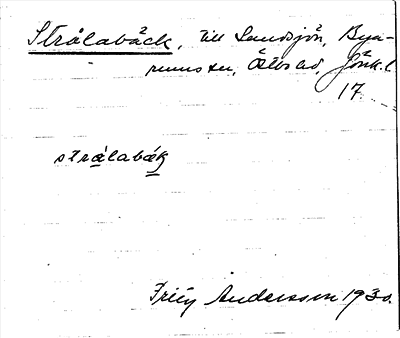 Strålabäck, till Sandsjön, Bya-
rums sn, Östbo hd, Jönk. l.
17.
strålabäk
Frey Andersson 1930.